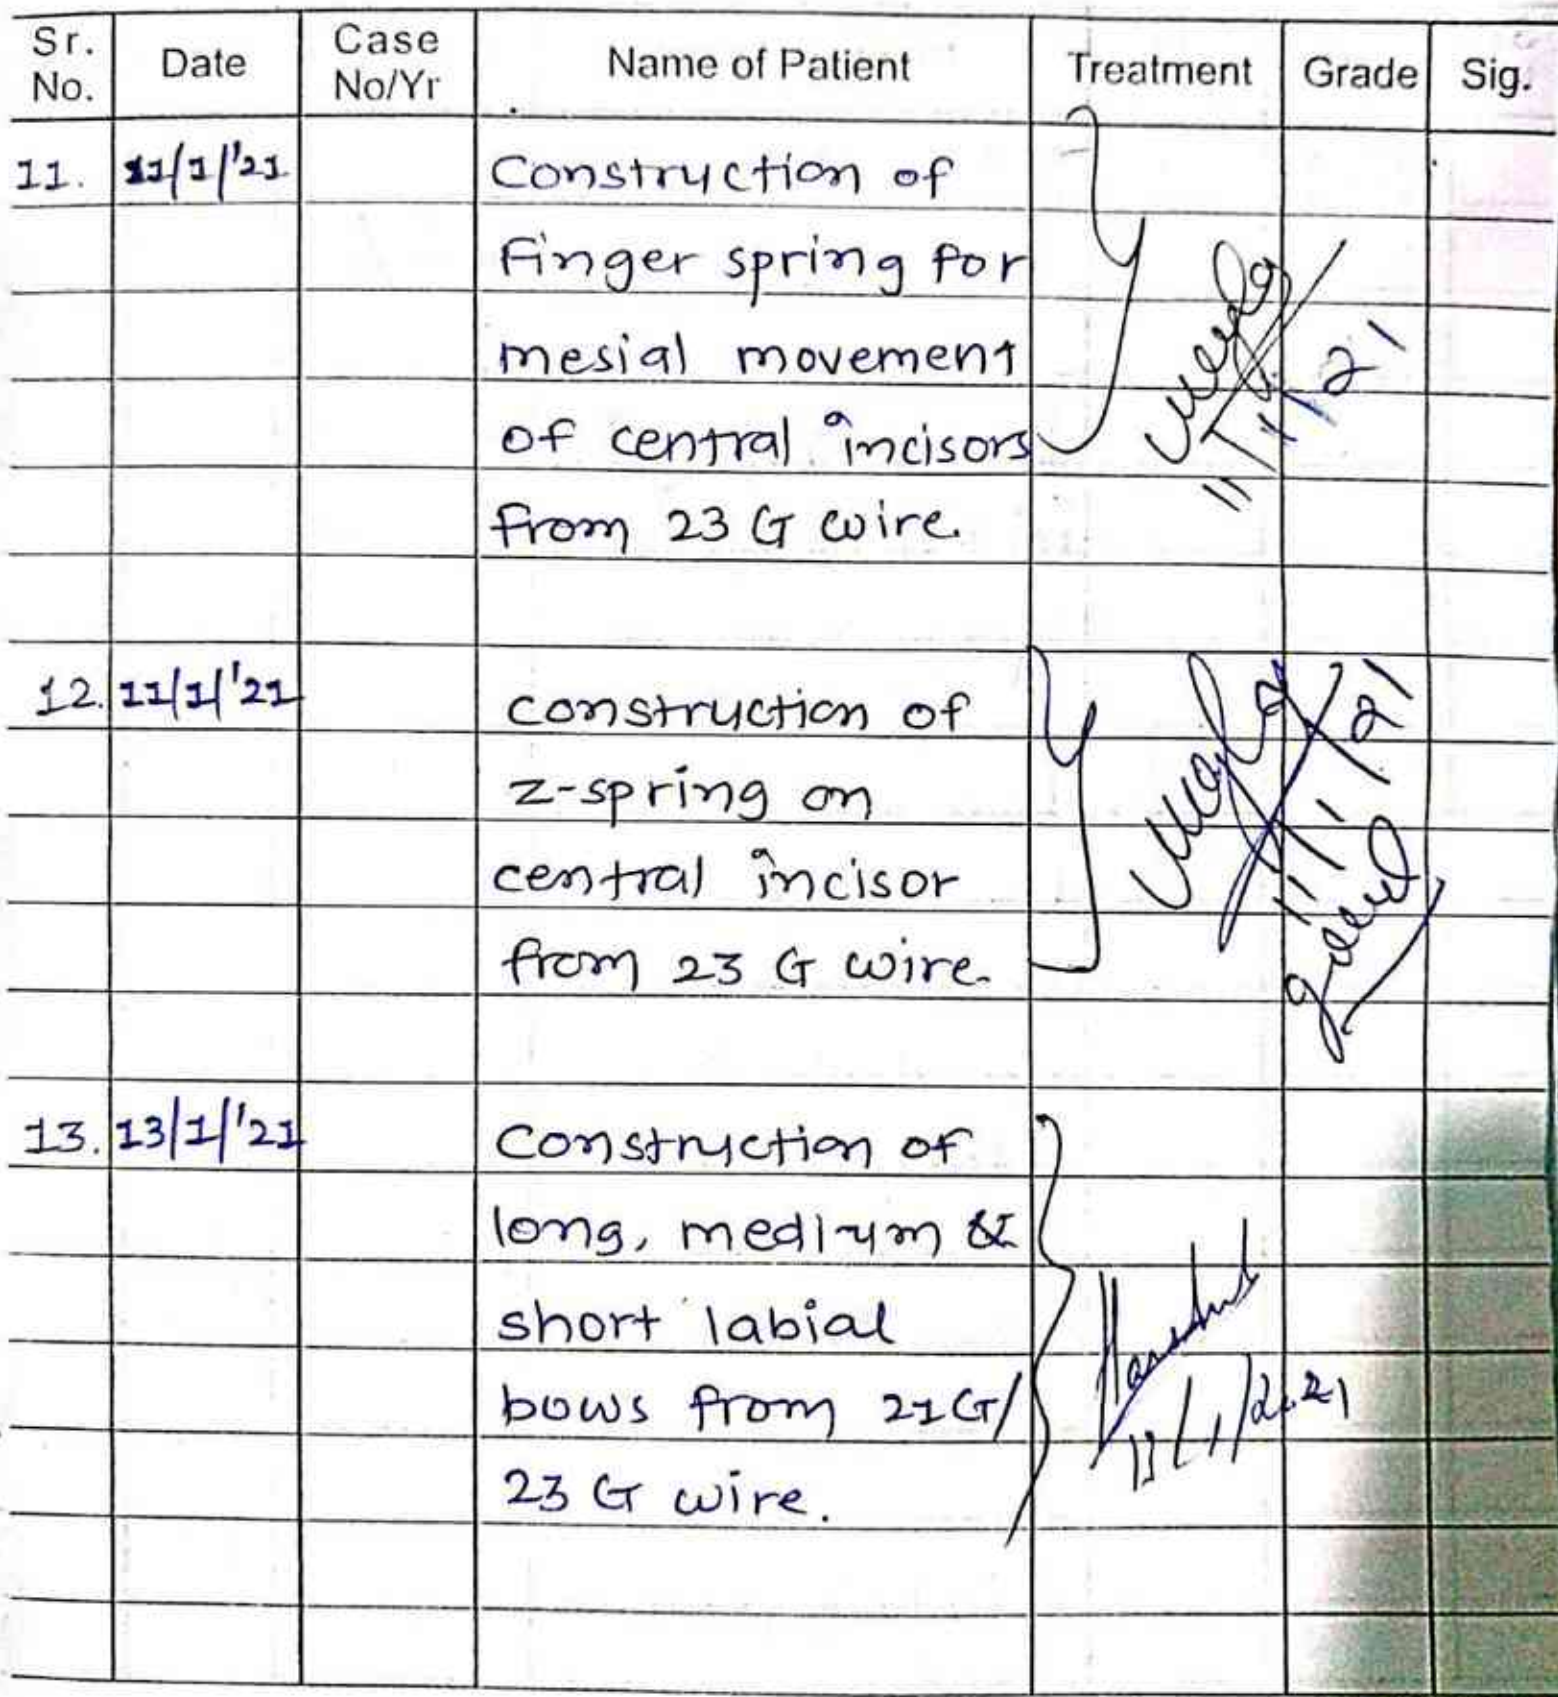 Sr. No. Date Case No/Yr Name of Patient Treatment Grade Sig.
11. 11/1/'21 Construction of
Finger spring for
mesial movement
of central incisors
from 23 G wire.
11/1/21
12. 11/1/'21 construction of
z-spring on
central incisor
from 23 G wire.
11/1/21
13. 13/1/'21 Construction of
long, medium &
short labial
bows from 21G/
23 G wire.